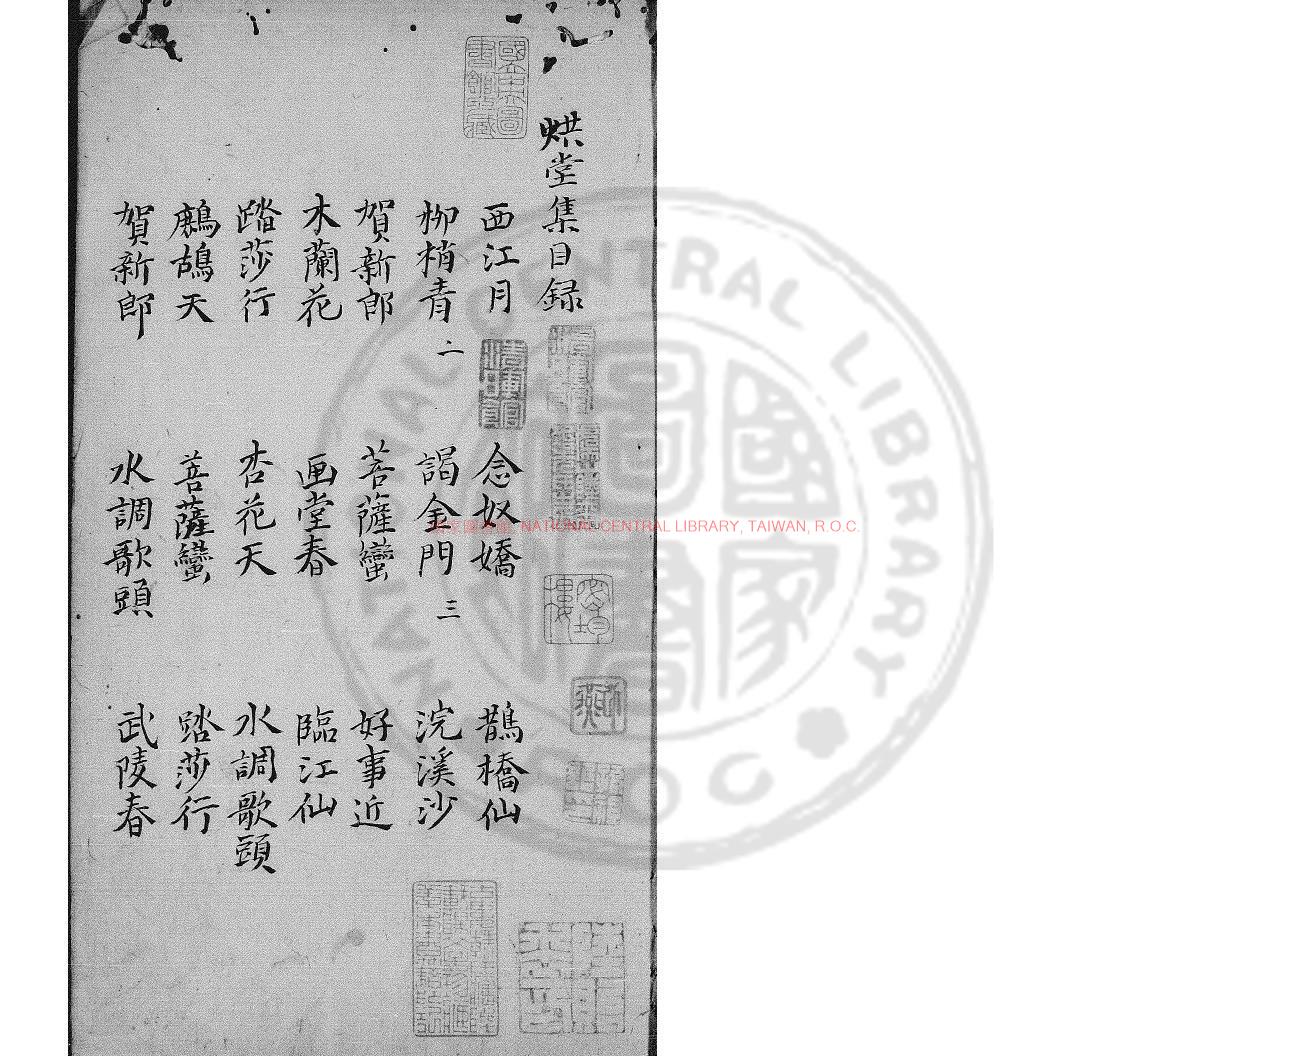 烘堂集目録
西江月 念奴嬌 鵲橋仙
柳梢青 二 謁金門 三 浣溪沙
賀新郎 菩薩蠻 好事近
木蘭花 画堂春 臨江仙
踏莎行 杏花天 水調歌頭
鷓鴣天 菩薩蠻 踏莎行
賀新郎 水調歌頭 武陵春
國立中央圖書館收藏
國家圖書館 NATIONAL CENTRAL LIBRARY, TAIWAN, R.O.C.
NATIONAL CENTRAL LIBRARY
R.O.C
國家圖書